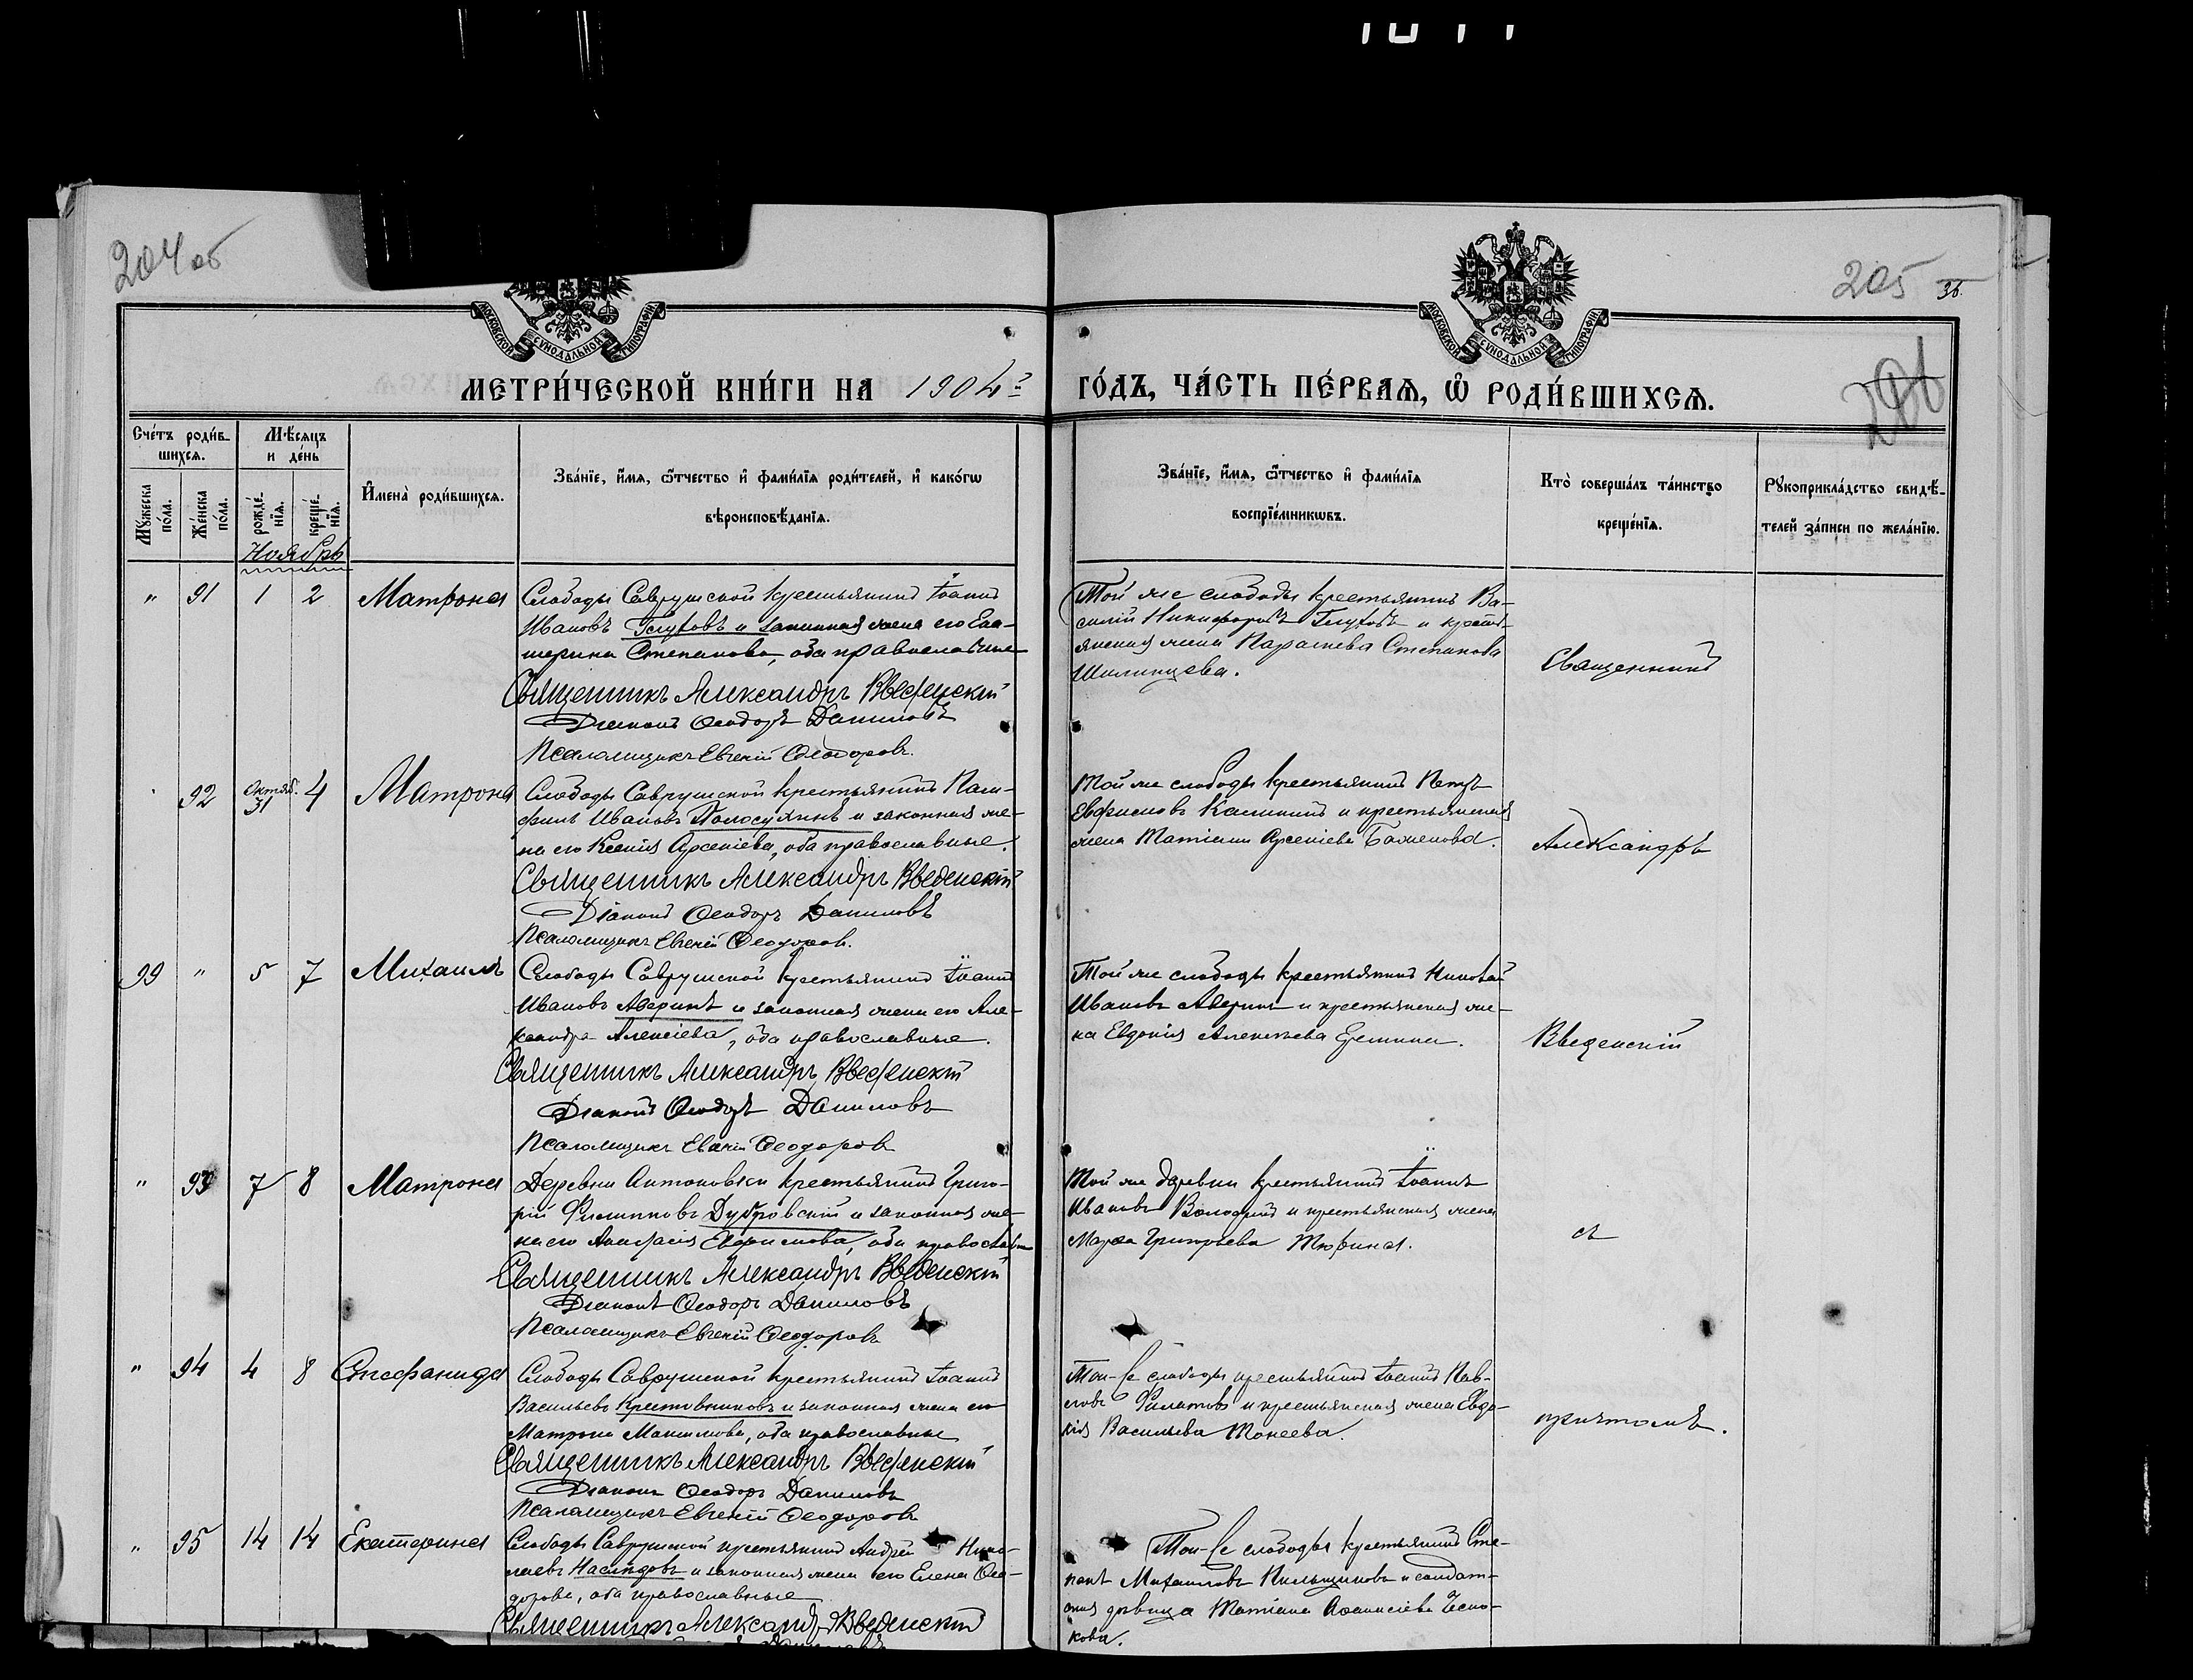 204 об
205
36.
МОСКОВСКОЙ СѴНОДАЛЬНОЙ ТИПОГРАФІИ
МОСКОВСКОЙ СѴНОДАЛЬНОЙ ТИПОГРАФІИ
МЕТРИ́ЧЕСКОЙ КНИ́ГИ НА 1904 ГО́ДЪ, ЧА́СТЬ ПЕ́РВАѦ, Ѡ҆ РОДИ́ВШИХСѦ.
Сче́тъ роди́в-
шихсѧ.
Мꙋжеска по́ла.
Же́нска по́ла.
Мѣ́сѧцъ
и де́нь
рожде́-
нїѧ.
креще́-
нїѧ.
И҆мена̀ роди́вшихсѧ.
Зва́нїе, и҆́мѧ, ѻ҆́тчество и҆ фами́лїѧ роди́телей, и҆ како́гѡ
вѣроисповѣ́данїѧ.
Зва́нїе, и҆́мѧ, ѻ҆́тчество и҆ фами́лїѧ
воспрїе́мникѡвъ.
Кто̀ соверша́лъ та́инство
креще́нїѧ.
Рꙋкоприкла́дство свидѣ́-
телей за́писи по жела́нїю.
Ноябрь
" 91 1 2 Матрона
Слободы Саврушской крестьянинъ Іоаннъ
Ивановъ Глуховъ и законная жена его Ека-
терина Степанова, оба православные
Священникъ Александръ Введенскій
Діаконъ Ѳеодоръ Даниловъ
Псаломщикъ Евгеній Ѳеодоровъ.
Той же слободы крестьянинъ Ва-
силій Никифоровъ Глуховъ и кресть-
янская жена Параскева Степанова
Священникъ
92 Октяб. 31 4 Матрона
Слободы Саврушской крестьянинъ Пам-
филъ Ивановъ Полосухинъ и законная же-
на его Ксенія Арсеніева, оба православные.
Священникъ Александръ Введенскій
Діаконъ Ѳеодоръ Даниловъ
Псаломщикъ Евгеній Ѳеодоровъ.
Той же слободы крестьянинъ Петръ
Евфимовъ и крестьянская
жена Татіана Арсеніева Баженова.
Александръ
99 " 5 7 Михаилъ
Слободы Саврушской крестьянинъ Іоаннъ
Ивановъ Аверинъ и законная жена его Але-
ксандра Алексіева, оба православные.
Священникъ Александръ Введенскій
Діаконъ Ѳеодоръ Даниловъ
Псаломщикъ Евгеній Ѳеодоровъ
Той же слободы крестьянинъ Николай
Ивановъ Аверинъ и крестьянская же-
на Евдокія Алексѣева
Введенскій
" 93 7 8 Матрона
Деревни Антоновки крестьянинъ Григо-
рій Филипповъ Дубровскій и законная же-
на его Анастасія Евфимова, оба православн
Священникъ Александръ Введенскій
Діаконъ Ѳеодоръ Даниловъ
Псаломщикъ Евгеній Ѳеодоровъ
Той же деревни крестьянинъ Іоаннъ
Ивановъ и крестьянская жена
Марѳа Григорьева Тюрина.
съ
" 94 4 8 Стефанида
Слободы Саврушской крестьянинъ Іоаннъ
Васильевъ Крестовниковъ и законная жена его
Матрона Максимова, оба православные
Священникъ Александръ Введенскій
Діаконъ Ѳеодоръ Даниловъ
Псаломщикъ Евгеній Ѳеодоровъ
Той-же слободы крестьянинъ Іоаннъ Пав-
ловъ Филатовъ и крестьянская жена Евдо-
кія Васильева Мокеева.
причтомъ.
" 95 14 14 Екатерина
Слободы Саврушской крестьянинъ Андрей Нико-
лаевъ Насѣдовъ и законная жена его Елена Ѳео-
дорова, оба православные
Священникъ Александръ Введенскій
Той-же слободы крестьянинъ Сте-
панъ Михаиловъ Пильщиковъ и солдат-
ская дѣвица Татіана Аѳанасіева Чесно-
кова.